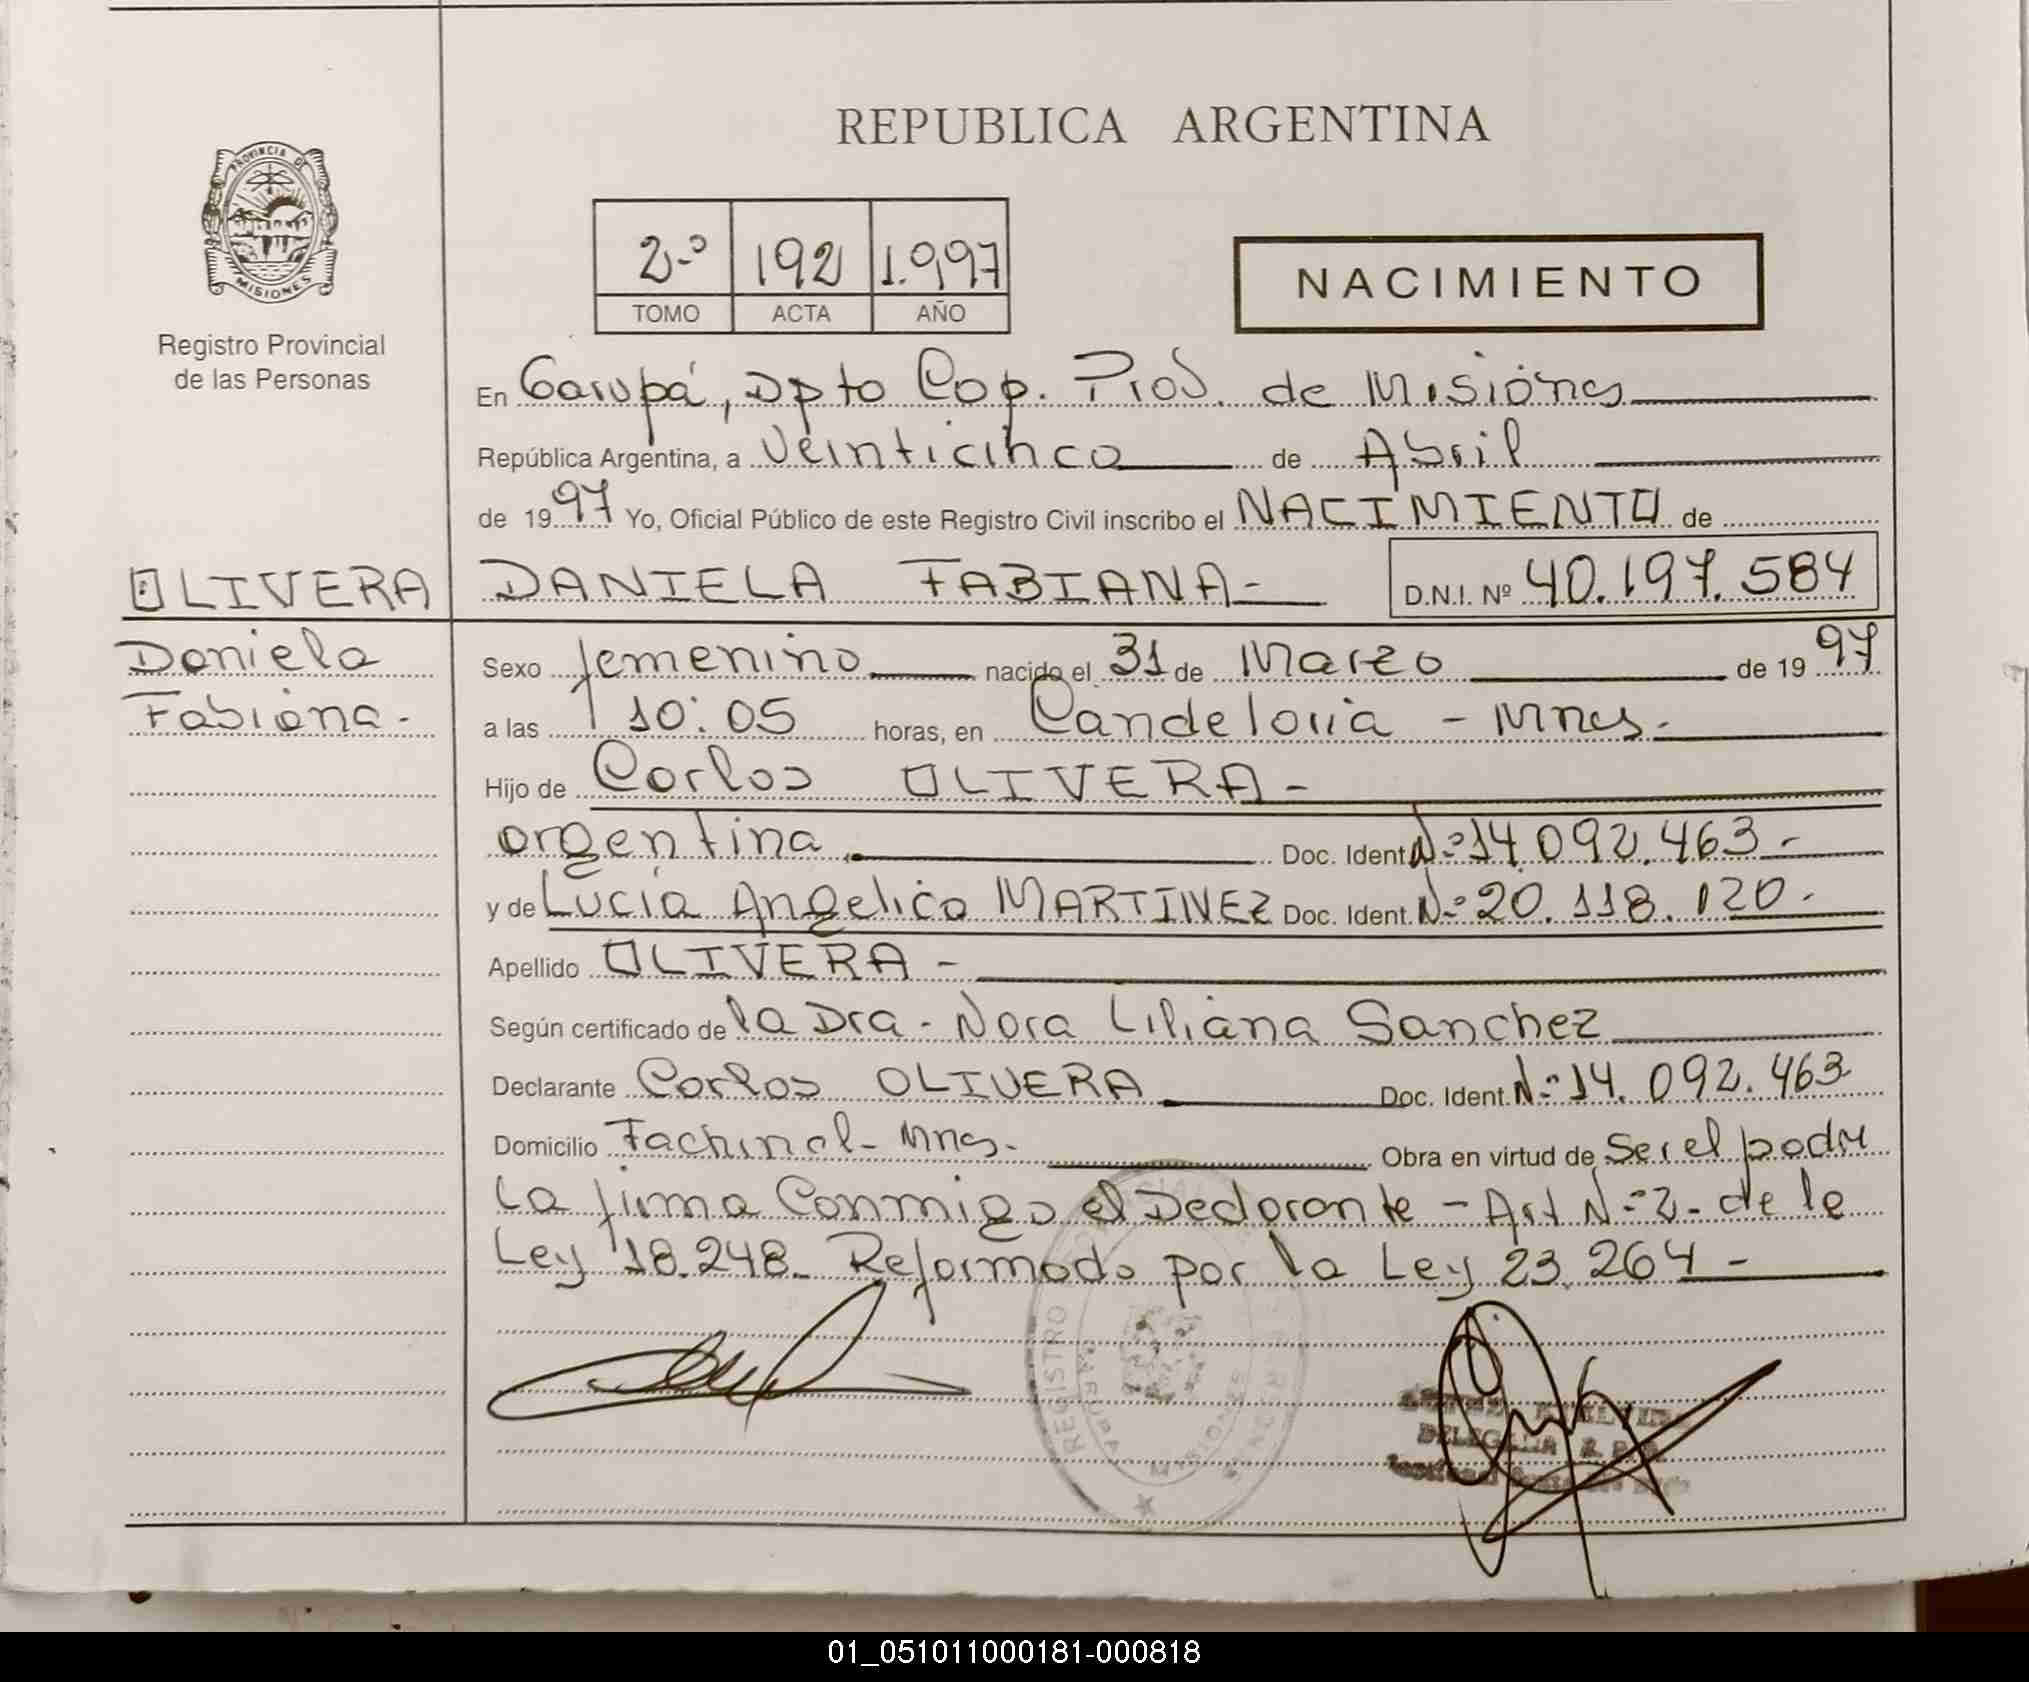 REPUBLICA ARGENTINA
PROVINCIA DE
MISIONES
Registro Provincial
de las Personas
2º 192 1.997
TOMO ACTA AÑO
NACIMIENTO
En Garupá, Dpto Cap. Prov. de Misiones
República Argentina, a Veinticinco de Abril
de 1997 Yo, Oficial Público de este Registro Civil inscribo el NACIMIENTO de
OLIVERA DANIELA FABIANA- D.N.I. Nº 40.197.584
Daniela
Fabiana.-
Sexo femenino nacido el 31 de Marzo de 1997
a las 10:05 horas, en Candelaria - Mnes.-
Hijo de Carlos OLIVERA -
argentina Doc. Ident. Nº 14.092.463-
y de Lucía Angelica MARTINEZ Doc. Ident. Nº 20.118.120.-
Apellido OLIVERA -
Según certificado de la Dra. Nora Liliana Sanchez
Declarante Carlos OLIVERA Doc. Ident. Nº 14.092.463
Domicilio Fachinal - Mnes. Obra en virtud de Ser el padre
La firma Conmigo el Declarante - Art Nº 2 - de la
Ley 18.248. Reformado por la Ley 23.264 -
REGISTRO
GARUPA MISIONES
DELEGADA
01_051011000181-000818